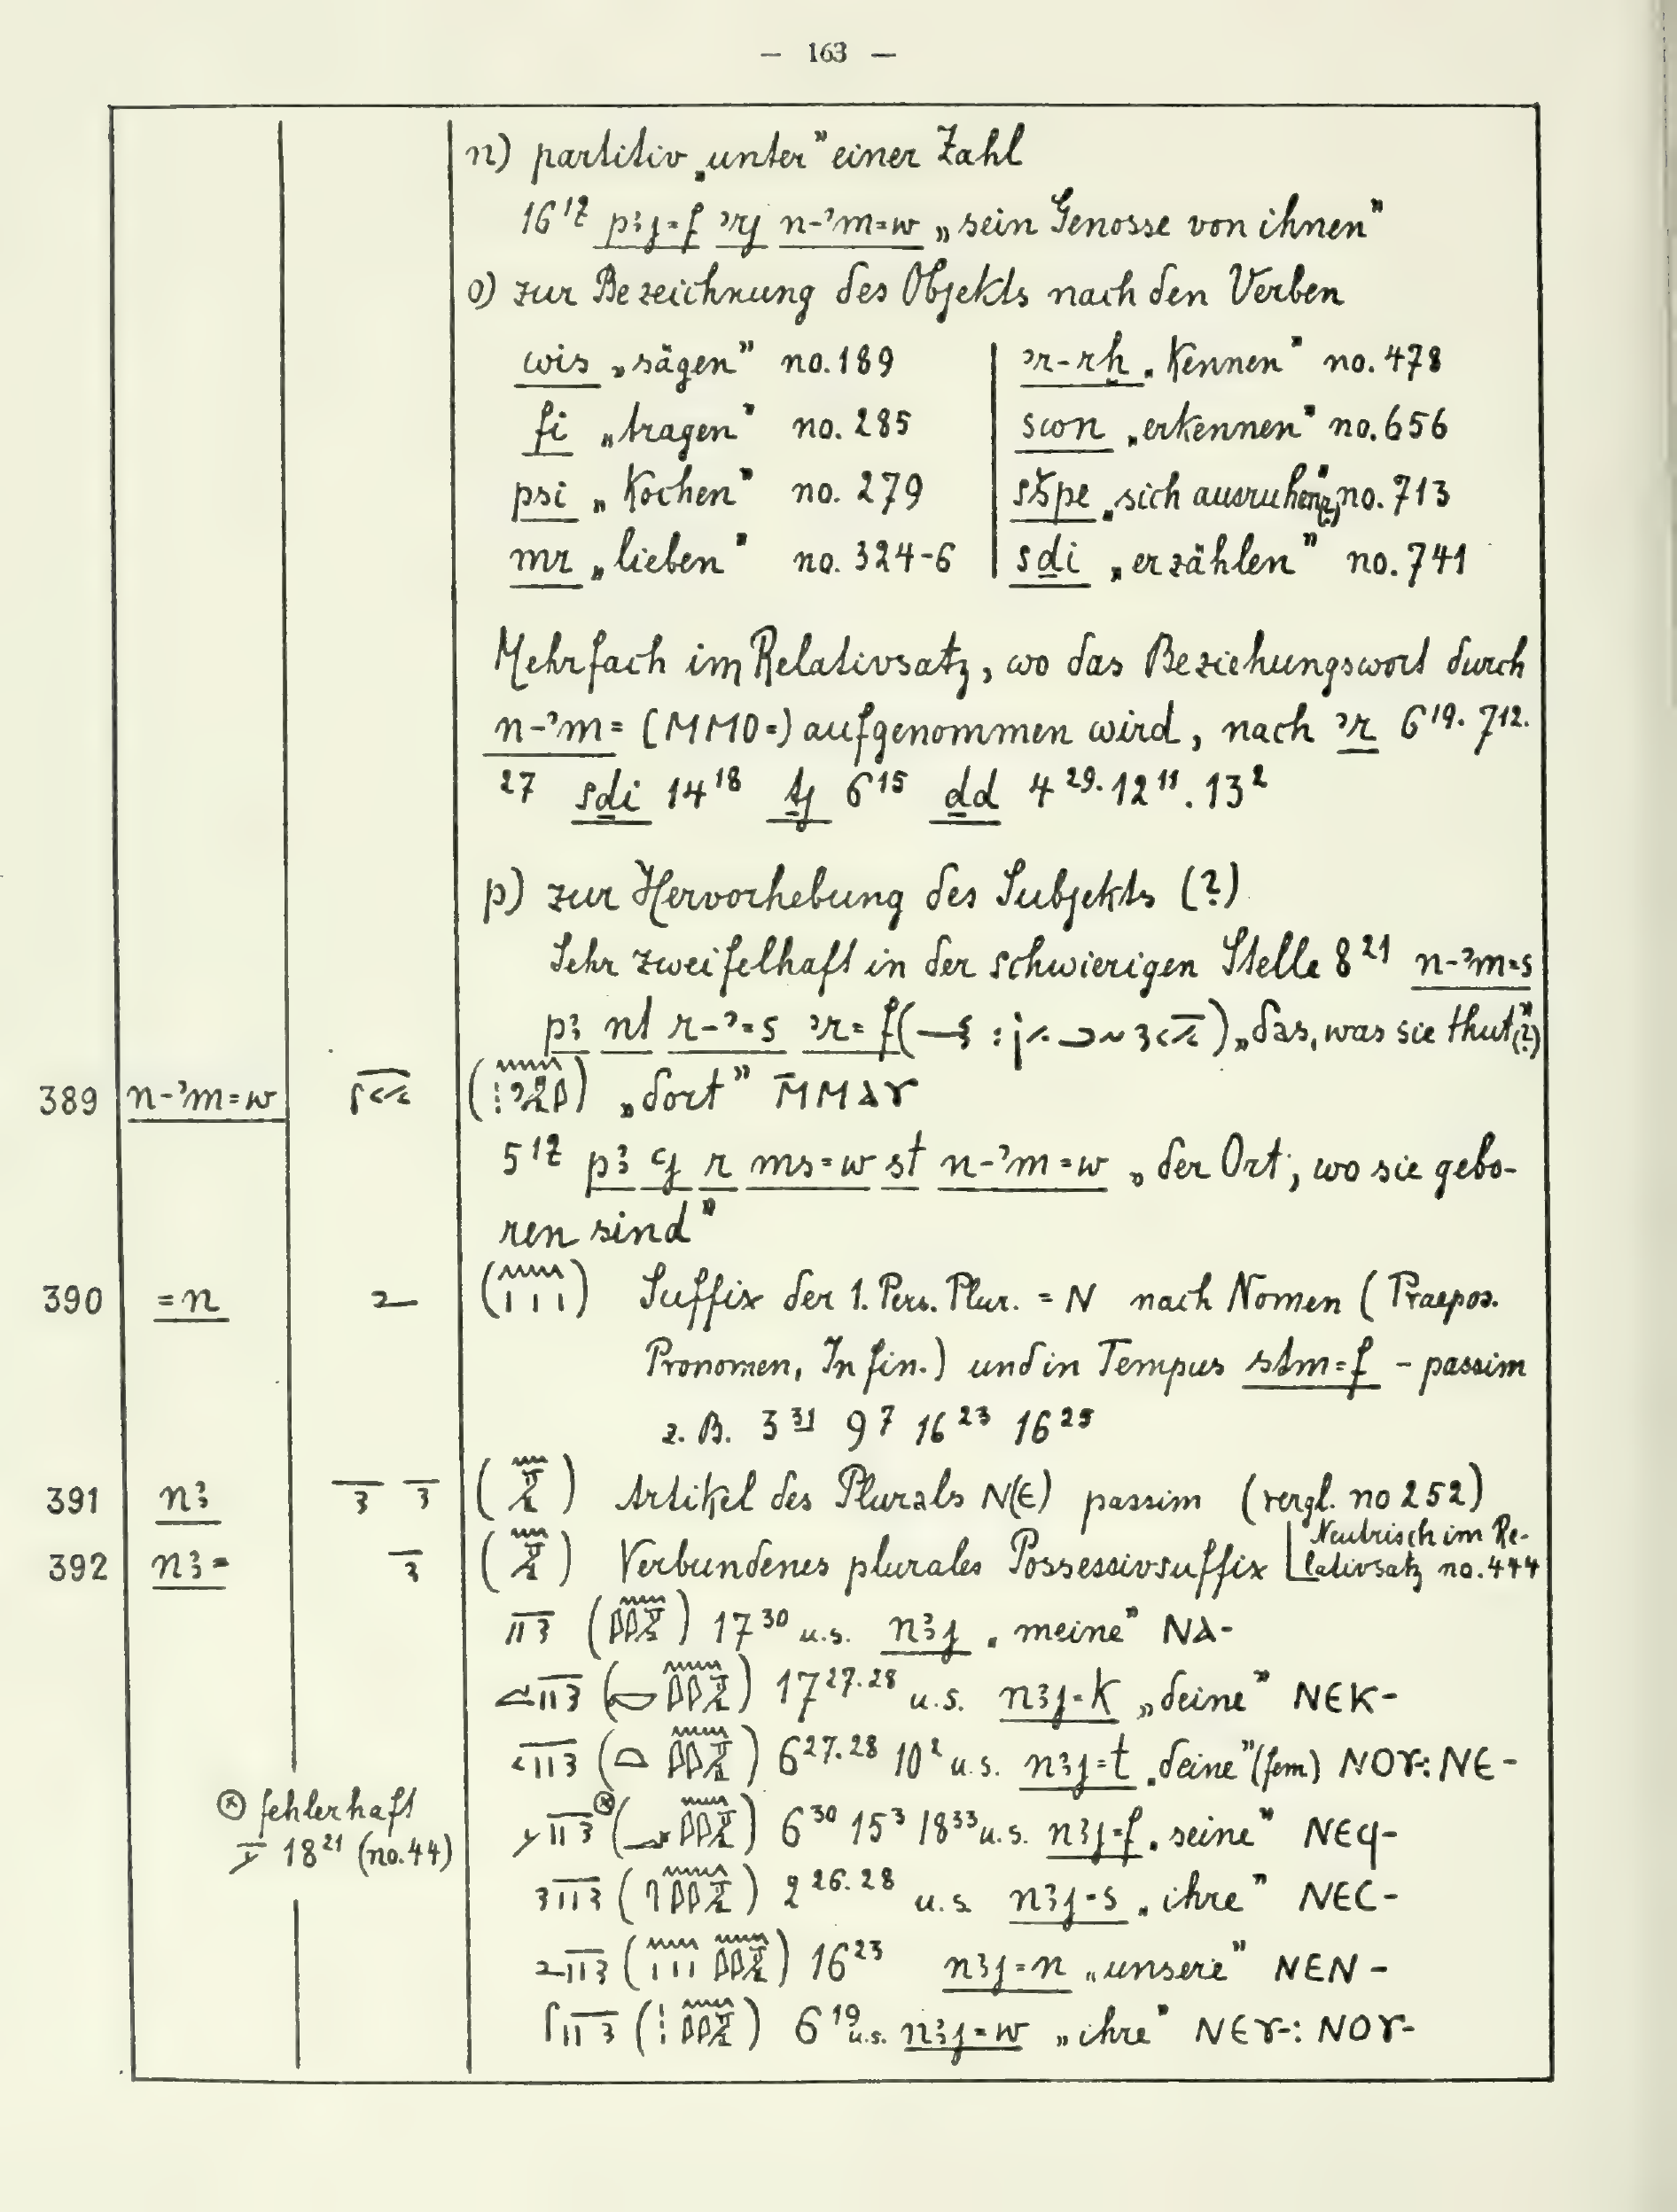 — 163 —
n) partitiv „unter” einer Zahl
16¹⁷ pꜣj=f ꜣrj n-ꜣm=w „sein Genosse von ihnen”
o) zur Bezeichnung des Objekts nach den Verben
wis „sägen” no. 189 ꜣr-rḫ „Kennen” no. 478
fi „tragen” no. 285 swn „erkennen” no. 656
psi „Kochen” no. 279 sḳpe „sich ausruhen”(?) no. 713
mr „lieben” no. 324-6 sḏi „erzählen” no. 741
Mehrfach im Relativsatz, wo das Beziehungswort durch
n-ꜣm= (ⲘⲘⲞ=) aufgenommen wird, nach ꜣr 6¹⁹· 7¹²·
²⁷ sḏi 14¹⁸ ṯj 6¹⁵ ḏd 4²⁹· 12¹¹. 13²
p) zur Hervorhebung des Subjekts (?)
Sehr zweifelhaft in der schwierigen Stelle 8²¹ n-ꜣm=s
pꜣ nt r-ꜣ=s ꜣr=f „das, was sie thut”(?)
389 n-ꜣm=w „dort” ⲘⲘⲀⲨ
5¹⁷ pꜣ ꜥj r ms=w st n-ꜣm=w „der Ort, wo sie gebo-
ren sind”
390 =n Suffix der 1. Pers. Plur. = Ⲛ nach Nomen (Praepos.
Pronomen, Infin.) und in Tempus stm=f - passim
z. B. 3³¹ 9⁷ 16²³ 16²⁵
391 nꜣ Artikel des Plurals Ⲛ(Ⲉ) passim (vergl. no 252)
Neutrisch im Re-
lativsatz no. 444
392 nꜣ= Verbundenes plurales Possessivsuffix
17³⁰ u.s. nꜣj „meine” ⲚⲀ-
17²⁷·²⁸ u.s. nꜣj=k „deine” ⲚⲈⲔ-
6²⁷·²⁸ 10² u.s. nꜣj=t „deine” (fem) ⲚⲞⲨ-: ⲚⲈ-
ⓧ fehlerhaft
18²¹ (no. 44)
ⓧ 6³⁰ 15³ 18³³ u.s. nꜣj=f „seine” ⲚⲈϤ-
2²⁶·²⁸ u.s. nꜣj=s „ihre” ⲚⲈⲤ-
16²³ nꜣj=n „unsere” ⲚⲈⲚ-
6¹⁹ u.s. nꜣj=w „ihre” ⲚⲈⲨ-: ⲚⲞⲨ-